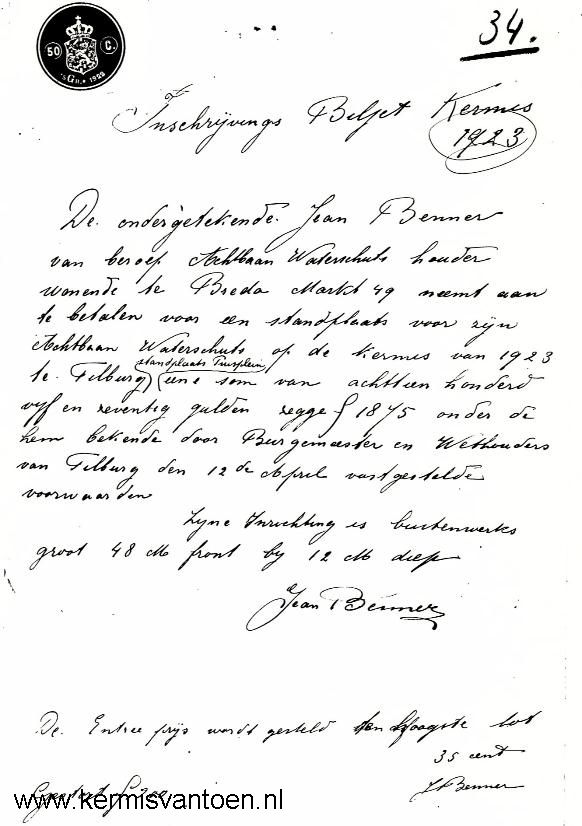 34.
50 C.
Inschrijvings Biljet Kermis
1923
De ondergetekende Jean Benner
van beroep Achtbaan Waterschuts houder
wonende te Breda Markt 49 neemt aan
te betalen voor een standplaats voor zijn
Achtbaan Waterschuts op de Kermis van 1923
standplaats Piusplein
te Tilburg eene som van achttien honderd
vyf en zeventig gulden zegge f 1875 onder de
hem bekende door Burgemeester en Wethouders
van Tilburg den 12 de April vastgestelde
voorwaarden
Zyne Inrichting is buitenwerks
groot 48 M front by 12 M diep
Jean Benner
De Entree prijs wordt gesteld ten Hoogste tot
35 cent
J Benner
www.kermisvantoen.nl